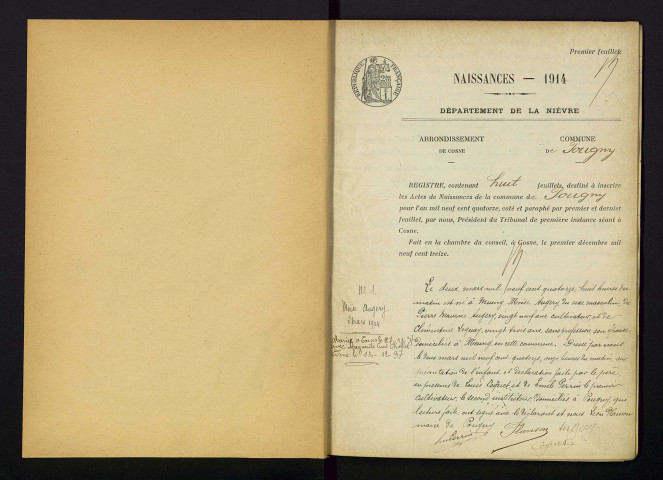 Premier feuillet
RÉPUBLIQUE FRANÇAISE
NAISSANCES — 1914
DÉPARTEMENT DE LA NIÈVRE
ARRONDISSEMENT
DE COSNE
COMMUNE
DE Pougny
REGISTRE, contenant huit feuillets, destiné à inscrire
les Actes de Naissances de la commune de Pougny
pour l'an mil neuf cent quatorze, coté et paraphé par premier et dernier
feuillet, par nous, Président du Tribunal de première instance séant à
Cosne.
Fait en la chambre du conseil, à Cosne, le premier décembre mil
neuf cent treize.
N. 1.
Augery
2 mars 1914
Le deux mars mil neuf cent quatorze, huit heures du
matin est né à Meung Moïse Augery du sexe masculin, de
Pierre Maurice Augery, vingt neuf ans cultivateur et de
Clémentine, vingt trois ans, sans profession, son épouse
domiciliés à Meung, en cette commune. Dressé par nous
le deux mars mil neuf cent quatorze, onze heures du matin, sur
présentation de l'enfant et déclaration faite par le père,
en présence de Louis et de Emile Perrin le premier
cultivateur, le second instituteur, domiciliés à Pougny, qui
lecture faite ont signé avec le déclarant et nous
maire de Pougny